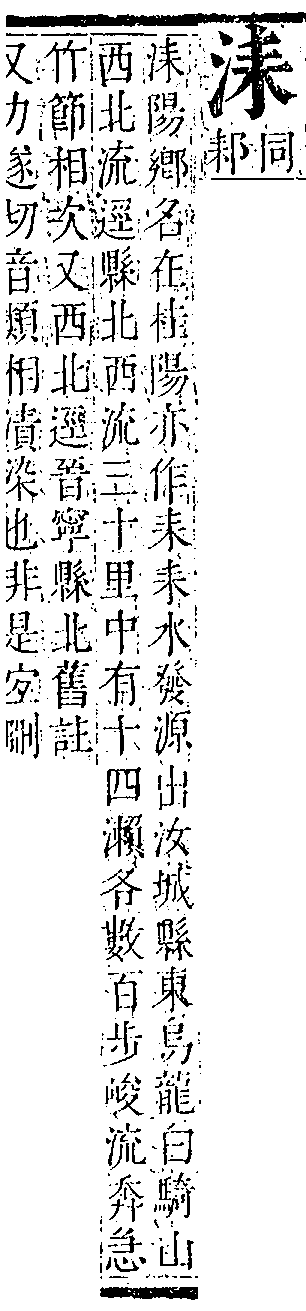 洡
同
洡陽鄉名在桂陽亦作耒耒水發源出汝城縣東烏龍白騎山
西北流逕縣北西流三十里中有十四瀨各數百步峻流奔急
竹節相次又西北逕晉寧縣北舊註
又力遂切音類相漬染也非是宐刪